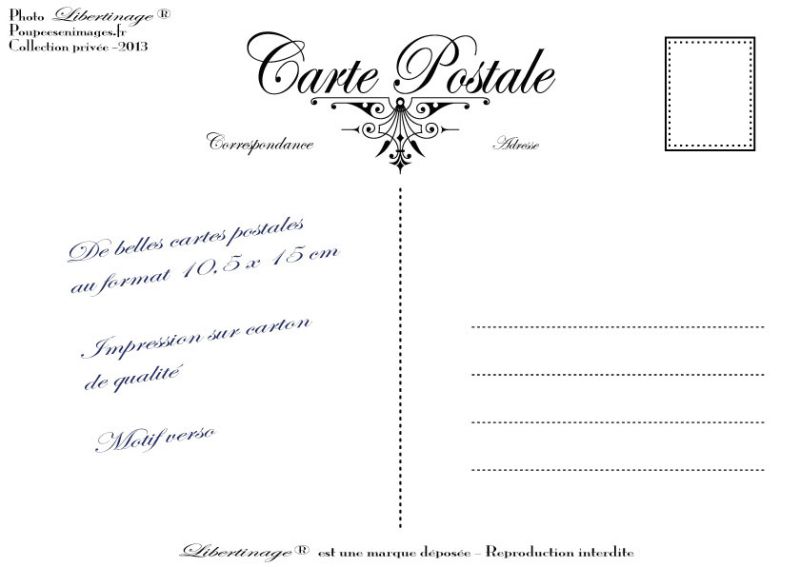 Photo Libertinage ®
Poupeesenimages.fr
Collection privée -2013
Carte Postale
Correspondance
Adresse
De belles cartes postales
au format 10,5 x 15 cm
Impression sur carton
de qualité
Motif verso
Libertinage ® est une marque déposée - Reproduction interdite